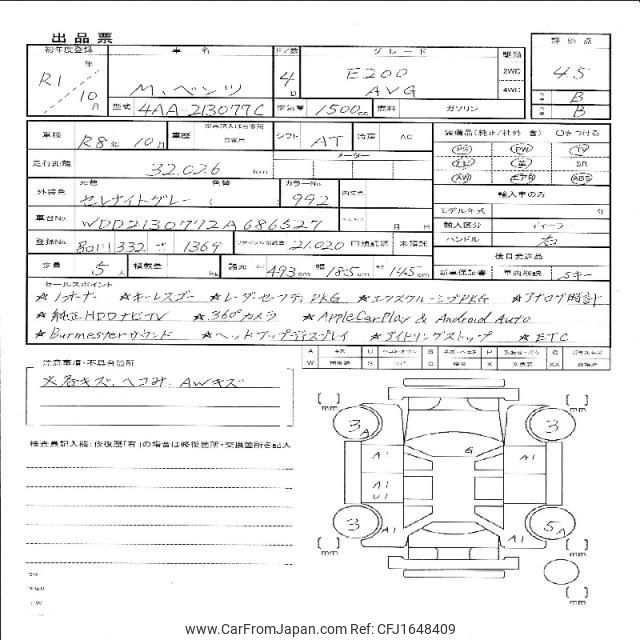 出品票
初年度登録 車名 ドア数 グレード 駆動 評価点
R1年 10月 M.ベンツ 4D E200 AVG 2WD 4WD 4.5
型式 4AA-213077C 排気量 1500cc 燃料 ガソリン B B
車検 R8年 10月 車歴 自家用 シフト AT 冷房 AC 装備品(純正/社外 含) ○をつける
走行距離 32,026 km メーター PS PW TV ナビ 革 SR AW エアB ABS
外装色 元色 セレナイトグレー 色替 カラーNo 992 内装色 輸入車のみ
車台No. WDD2130772A686527 月 日 モデル年式 年 輸入区分 ディーラ
登録No. 品川 332 さ 1369 リサイクル預託金 21,020 円 預託済 未預託 ハンドル 右
定員 5人 積載量 kg 諸元 長 493cm 幅 185cm 高 145cm 後日発送品 新車保証書 車両取説 Sキー
セールスポイント
★1オーナー ★キーレスゴー ★レーダーセーフティPKG ★エクスクルーシブPKG ★アナログ時計
★純正HDDナビTV ★360°カメラ ★AppleCarPlay & Android Auto
★Burmesterサウンド ★ヘッドアップディスプレイ ★アイドリングストップ ★ETC
A キズ U ヘコミ B キズ・ヘコミ P G
W S C X 交換済 XX
注意事項・不具合箇所
※各キズ、ヘコみ、AWキズ
検査員記入欄:修復歴「有」の場合は修復箇所・交換箇所を記入
[ ] mm [ ] mm
3 A 3
A1 G A1
A1 U1
3 A1 A1 5A
[ ] mm [ ] mm
mm
www.CarFromJapan.com Ref: CFJ1648409